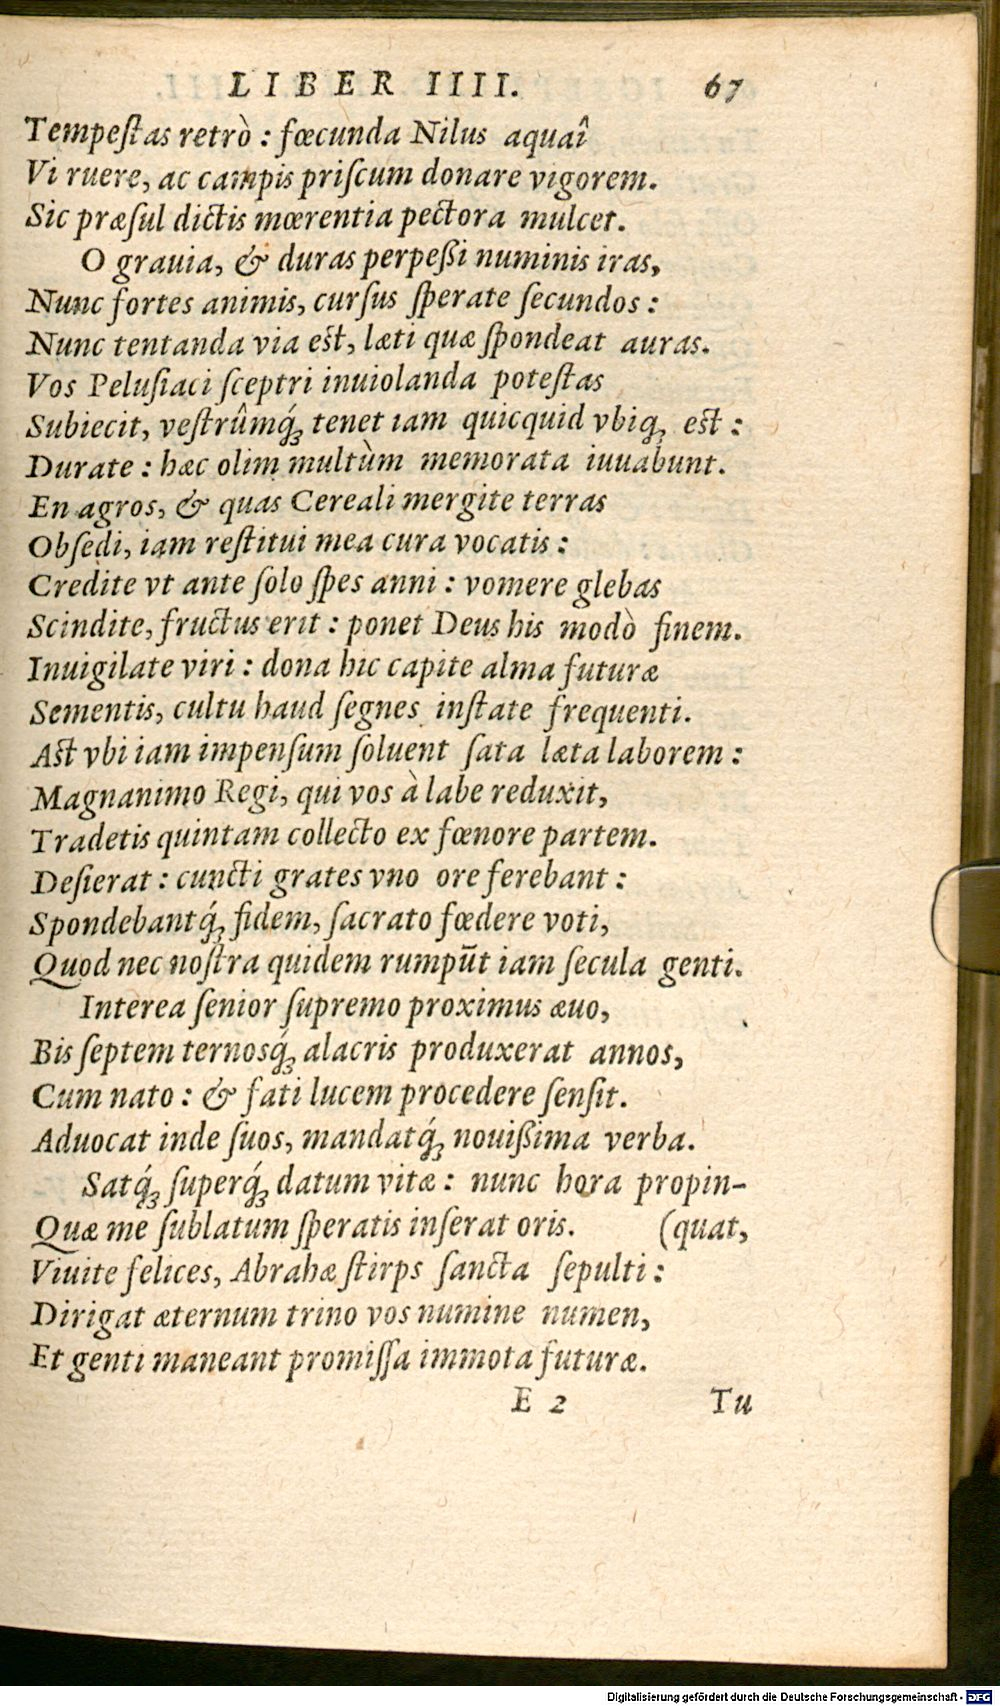 LIBER IIII. 67
Tempeſtas retrò : fœcunda Nilus aquaî
Vi ruere, ac campis priſcum donare vigorem.
Sic præſul dictis mœrentia pectora mulcet.
O grauia, & duras perpeßi numinis iras,
Nunc fortes animis, curſus ſperate ſecundos :
Nunc tentanda via eſt, læti quæ ſpondeat auras.
Vos Peluſiaci ſceptri inuiolanda poteſtas
Subiecit, veſtrûmq́ꝫ tenet iam quicquid vbiqꝫ eſt :
Durate : hæc olim multùm memorata iuuabunt.
En agros, & quas Cereali mergite terras
Obſedi, iam reſtitui mea cura vocatis :
Credite vt ante ſolo ſpes anni : vomere glebas
Scindite, fructus erit : ponet Deus his modò finem.
Inuigilate viri : dona hic capite alma futuræ
Sementis, cultu haud ſegnes inſtate frequenti.
Aſt vbi iam impenſum ſoluent ſata læta laborem :
Magnanimo Regi, qui vos à labe reduxit,
Tradetis quintam collecto ex fœnore partem.
Deſierat : cuncti grates vno ore ferebant :
Spondebantq́ꝫ fidem, ſacrato fœdere voti,
Quod nec noſtra quidem rumpūt iam ſecula genti.
Interea ſenior ſupremo proximus æuo,
Bis ſeptem ternosq́ꝫ alacris produxerat annos,
Cum nato : & fati lucem procedere ſenſit.
Aduocat inde ſuos, mandatq́ꝫ nouißima verba.
Satq́ꝫ ſuperq́ꝫ datum vitæ : nunc hora propin-
Quæ me ſublatum ſperatis inſerat oris. (quat,
Viuite felices, Abrahæ ſtirps ſancta ſepulti :
Dirigat æternum trino vos numine numen,
Et genti maneant promiſſa immota futuræ.
E 2 Tu
Digitalisierung gefördert durch die Deutsche Forschungsgemeinschaft - DFG